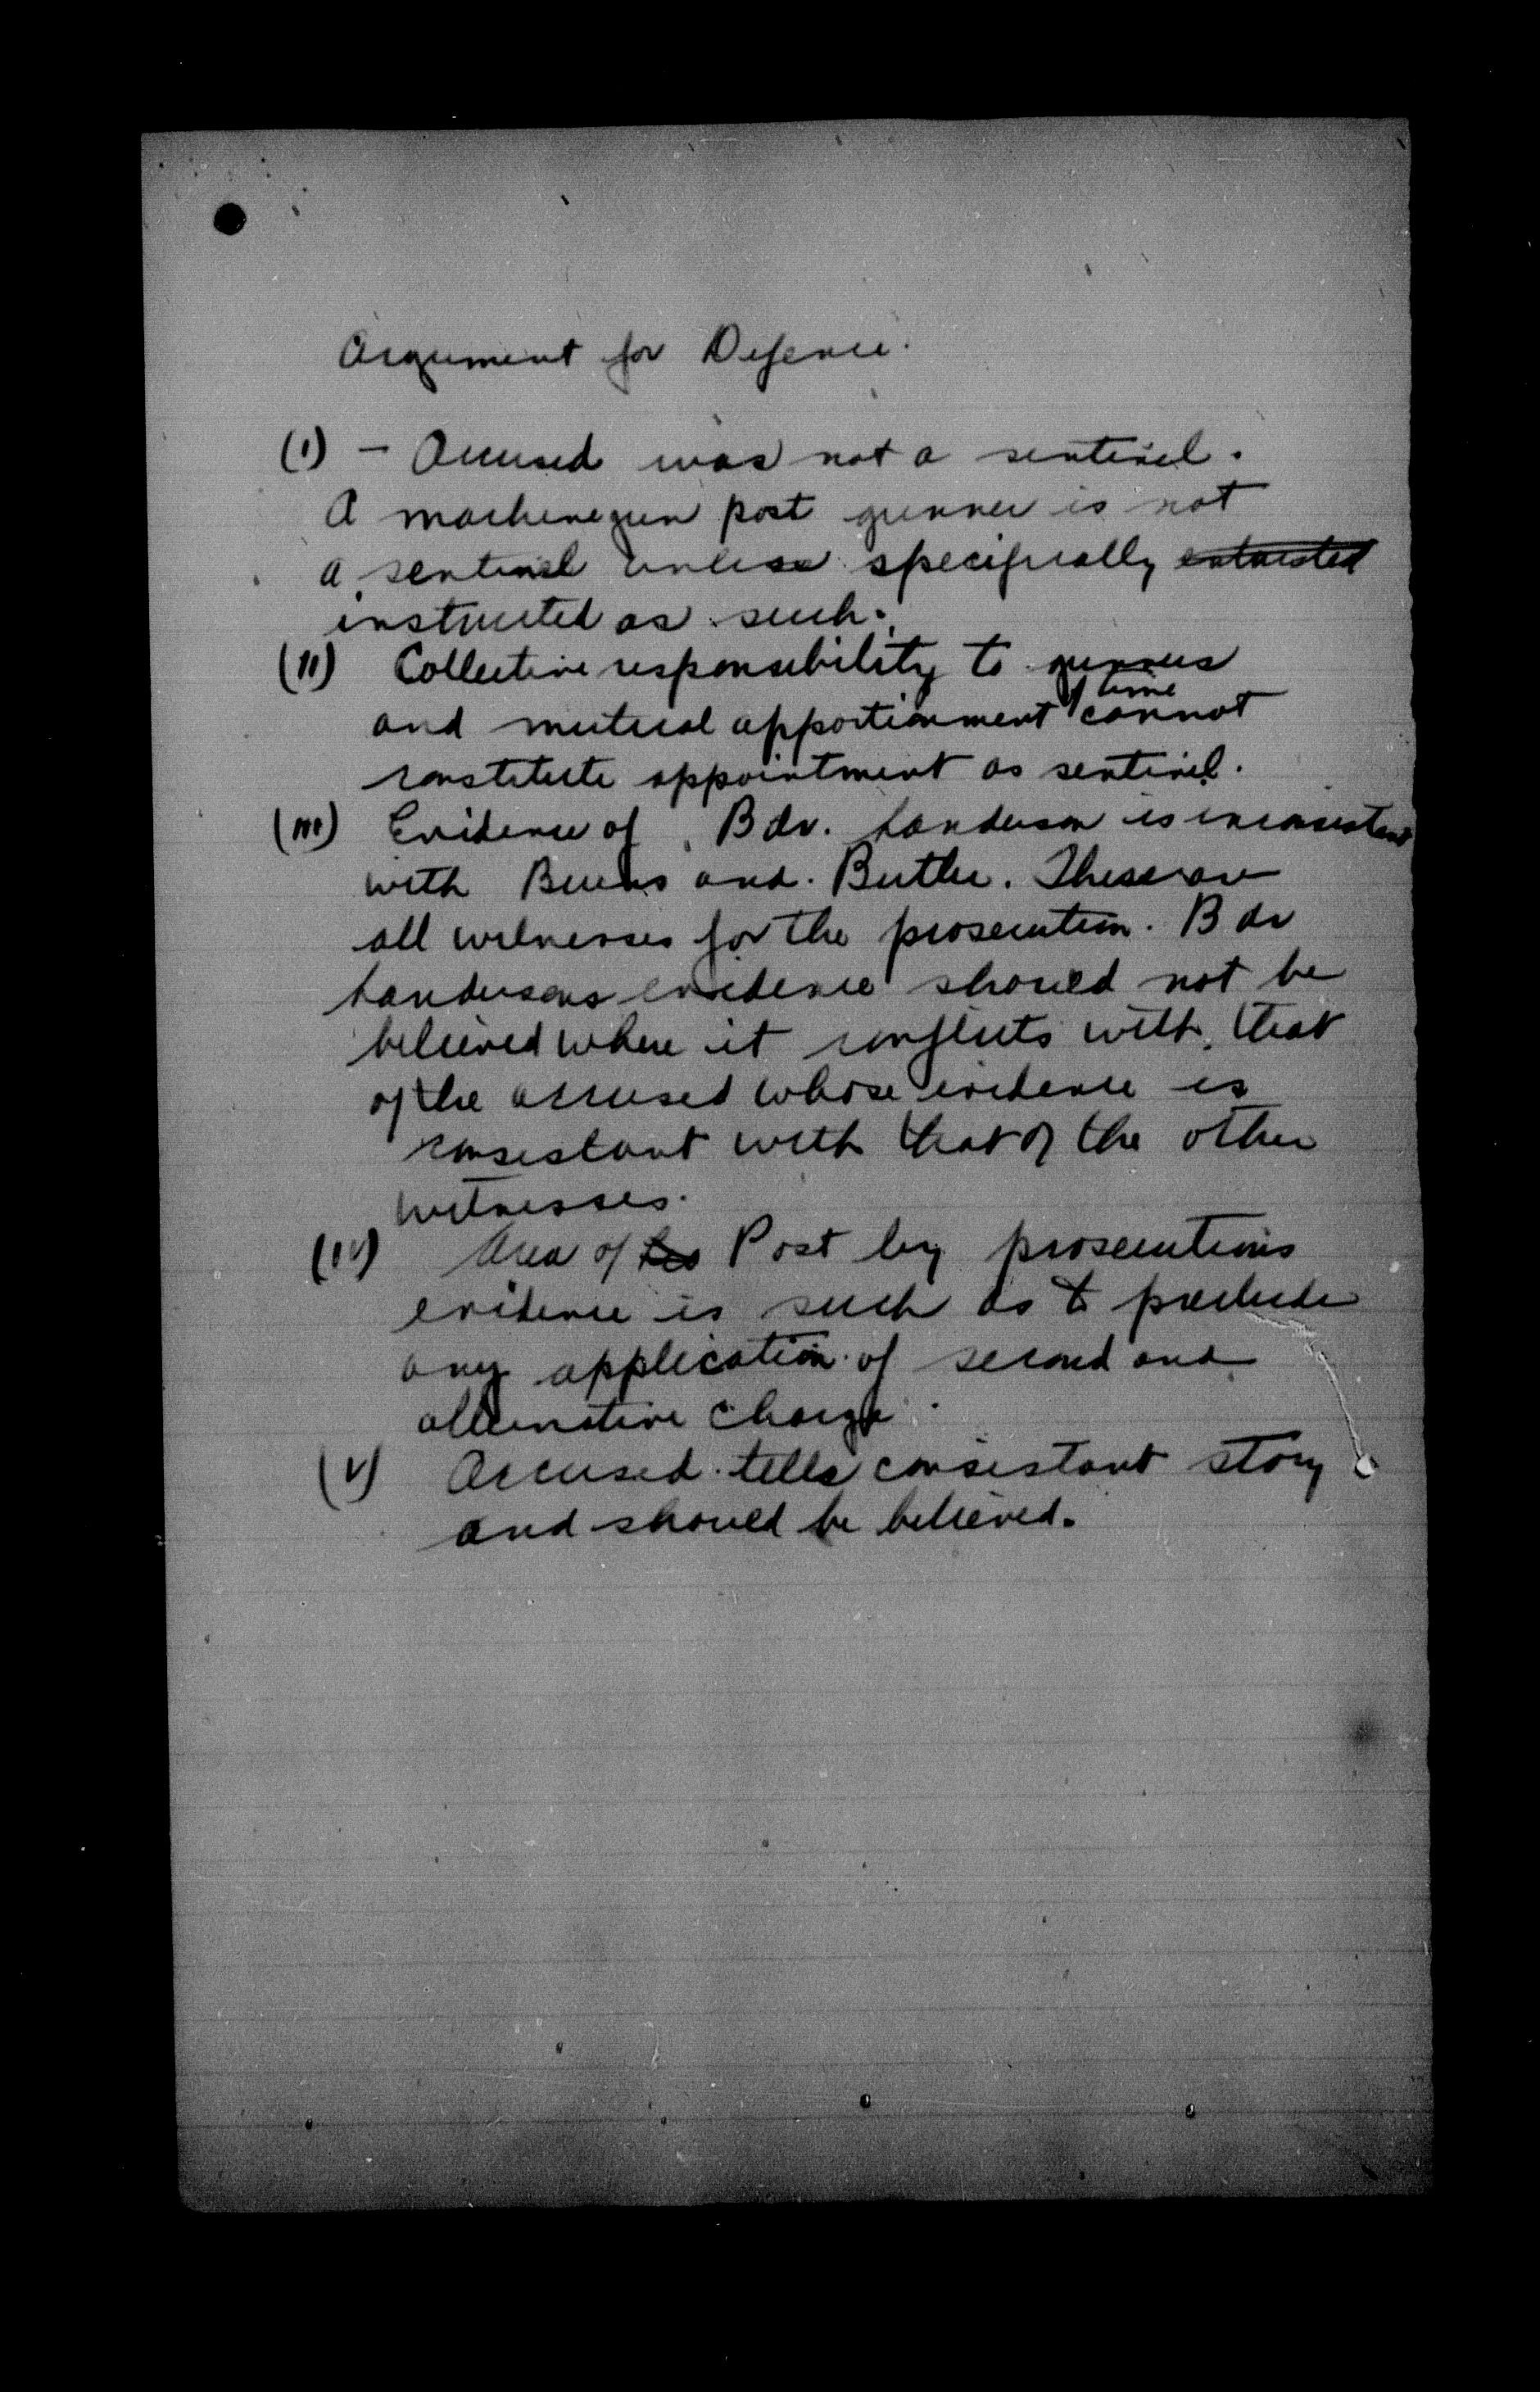 Argument for Defence.
(I) - Accused was not a sentinel.
A machinegun post gunner is not
a sentinel unless specifically entrusted
instructed as such.
(II) Collective responsibility to gunners
and mutual apportionment of time cannot
constitute appointment as sentinel.
(III) Evidence of Bdr. Landerson is inconsistant
with Burns and Butler. These are
all witnesses for the prosecution. Bdr
Landersons evidence should not be
believed where it conflicts with that
of the accused whose evidence is
consistant with that of the other
witnesses.
(IV) Area of Post by prosecutions
evidence is such as to preclude
any application of second and
alternative charge.
(V) Accused tells consistant story
and should be believed.